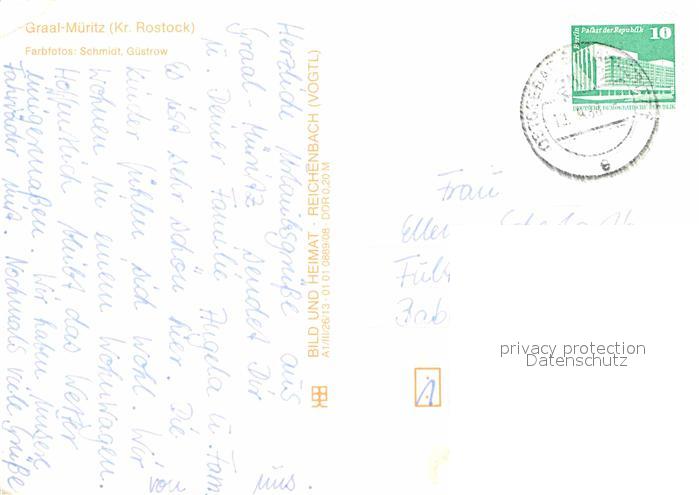 Graal-Müritz (Kr. Rostock)
Farbfotos: Schmidt, Güstrow
Herzliche Urlaubsgrüße aus
Graal-Müritz sendet Dir
u. Deiner Familie Angela u. Fam.
Es ist sehr schön hier. Die
Kinder fühlen sich wohl. Wir
wohnen in einem Wohnwagen.
Hoffentlich bleibt das Wetter
einigermaßen. Wir haben unsere
Fahrräder mit. Nochmals viele Grüße
von uns.
BILD UND HEIMAT · REICHENBACH (VOGTL)
A1/III/26/13 · 01 01 0889/08 · DDR 0,20 M
Berlin Palast der Republik 10
DEUTSCHE DEMOKRATISCHE REPUBLIK
OSTSEEBAD
e
Frau
privacy protection
Datenschutz